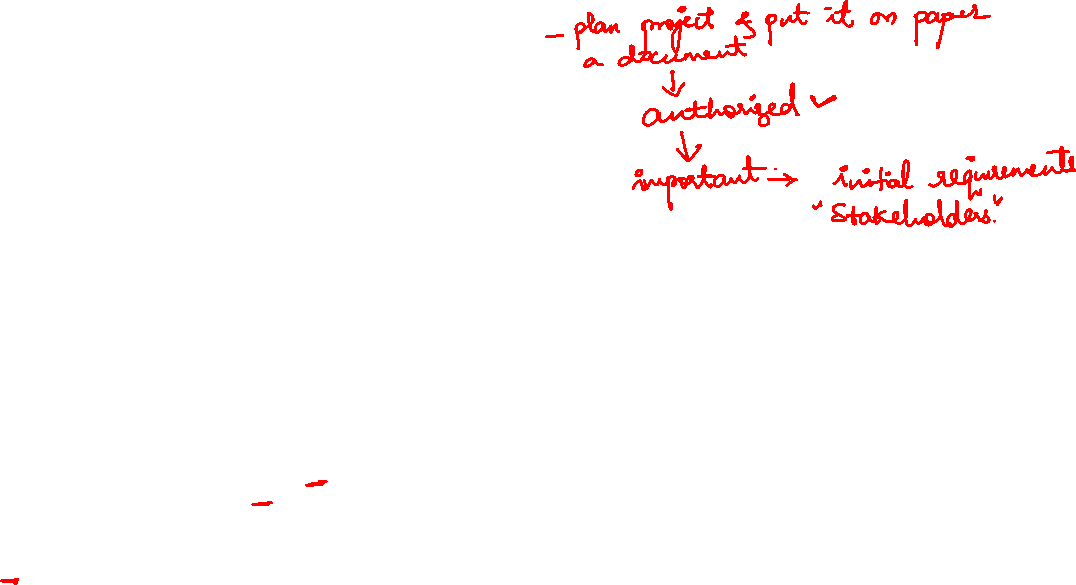 - plan project & put it on paper
a document
↓
authorized ✓
↓
important → initial requirements
"Stakeholders."